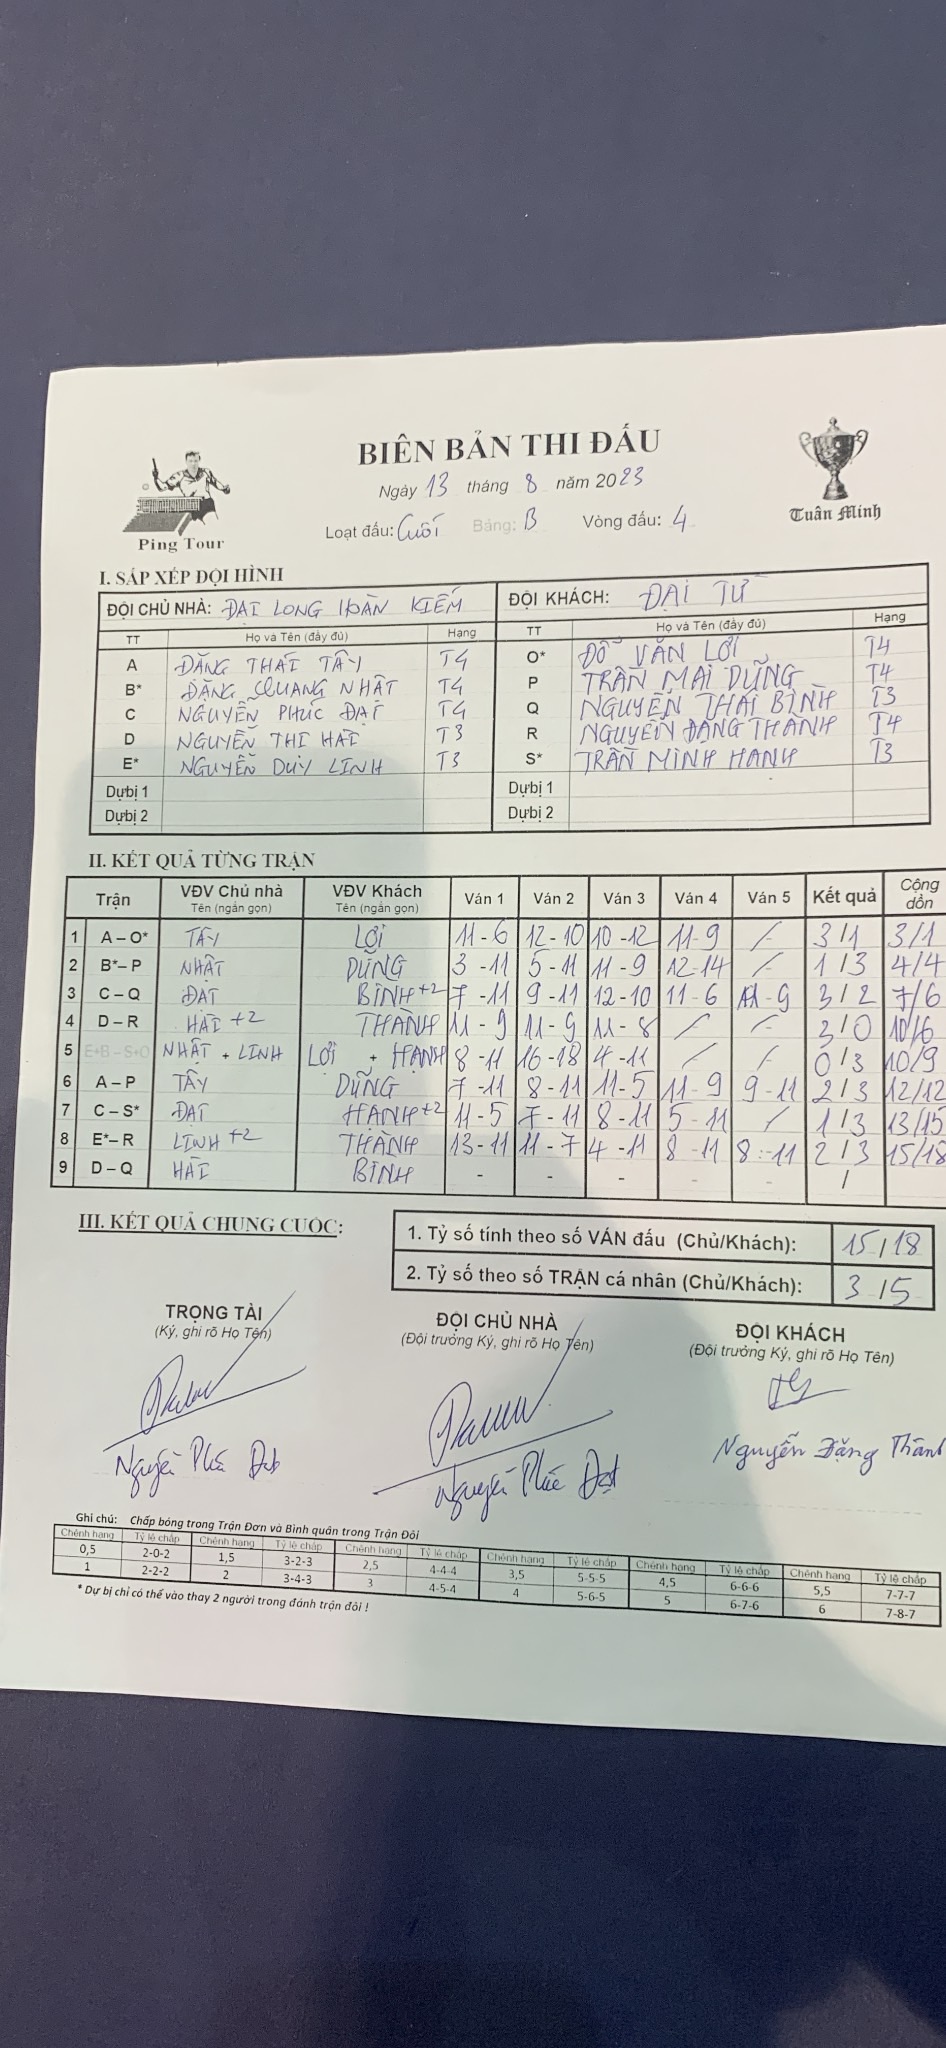 BIÊN BẢN THI ĐẤU
Ngày 13 tháng 8 năm 2023
Loạt đấu: Cuối Bảng: B Vòng đấu: 4
Ping Tour
Tuân Minh
I. SẮP XẾP ĐỘI HÌNH
ĐỘI CHỦ NHÀ: ĐẠI LONG HOÀN KIẾM ĐỘI KHÁCH: ĐẠI TỪ
TT Họ và Tên (đầy đủ) Hạng TT Họ và Tên (đầy đủ) Hạng
A ĐẶNG THÁI TÂY T4 O* ĐỖ VĂN LỢI T4
B* ĐẶNG QUANG NHẬT T4 P TRẦN MAI DŨNG T4
C NGUYỄN PHÚC ĐẠT T4 Q NGUYỄN THÁI BÌNH T3
D NGUYỄN THỊ HẢI T3 R NGUYỄN ĐẶNG THÀNH T4
E* NGUYỄN DUY LINH T3 S* TRẦN MINH HẠNH T3
Dự bị 1 Dự bị 1
Dự bị 2 Dự bị 2
II. KẾT QUẢ TỪNG TRẬN
Trận VĐV Chủ nhà Tên (ngắn gọn) VĐV Khách Tên (ngắn gọn) Ván 1 Ván 2 Ván 3 Ván 4 Ván 5 Kết quả Cộng dồn
1 A – O* TÂY LỢI 11 - 6 12 - 10 10 - 12 11 - 9 / 3 / 1 3/1
2 B*– P NHẬT DŨNG 3 - 11 5 - 11 11 - 9 12 - 14 / 1 / 3 4/4
3 C – Q ĐẠT BÌNH +2 7 - 11 9 - 11 12 - 10 11 - 6 11 - 9 3 / 2 7/6
4 D – R HẢI +2 THÀNH 11 - 9 11 - 9 11 - 8 / / 3 / 0 10/6
5 E+B – S+O NHẬT + LINH LỢI + HẠNH 8 - 11 16 - 18 4 - 11 / / 0 / 3 10/9
6 A – P TÂY DŨNG 7 - 11 8 - 11 11 - 5 11 - 9 9 - 11 2 / 3 12/12
7 C – S* ĐẠT HẠNH +2 11 - 5 7 - 11 8 - 11 5 - 11 / 1 / 3 13/15
8 E*– R LINH +2 THÀNH 13 - 11 11 - 7 4 - 11 8 - 11 8 - 11 2 / 3 15/18
9 D – Q HẢI BÌNH - - - - - /
III. KẾT QUẢ CHUNG CUỘC:
1. Tỷ số tính theo số VÁN đấu (Chủ/Khách): 15 / 18
2. Tỷ số theo số TRẬN cá nhân (Chủ/Khách): 3 / 5
TRỌNG TÀI ĐỘI CHỦ NHÀ ĐỘI KHÁCH
(Ký, ghi rõ Họ Tên) (Đội trưởng Ký, ghi rõ Họ Tên) (Đội trưởng Ký, ghi rõ Họ Tên)
Nguyễn Phúc Đạt Nguyễn Phúc Đạt Nguyễn Đặng Thành
Ghi chú: Chấp bóng trong Trận Đơn và Bình quân trong Trận Đôi
Chênh hạng Tỷ lệ chấp Chênh hạng Tỷ lệ chấp Chênh hạng Tỷ lệ chấp Chênh hạng Tỷ lệ chấp Chênh hạng Tỷ lệ chấp Chênh hạng Tỷ lệ chấp
0,5 2-0-2 1,5 3-2-3 2,5 4-4-4 3,5 5-5-5 4,5 6-6-6 5,5 7-7-7
1 2-2-2 2 3-4-3 3 4-5-4 4 5-6-5 5 6-7-6 6 7-8-7
* Dự bị chỉ có thể vào thay 2 người trong đánh trận đôi !